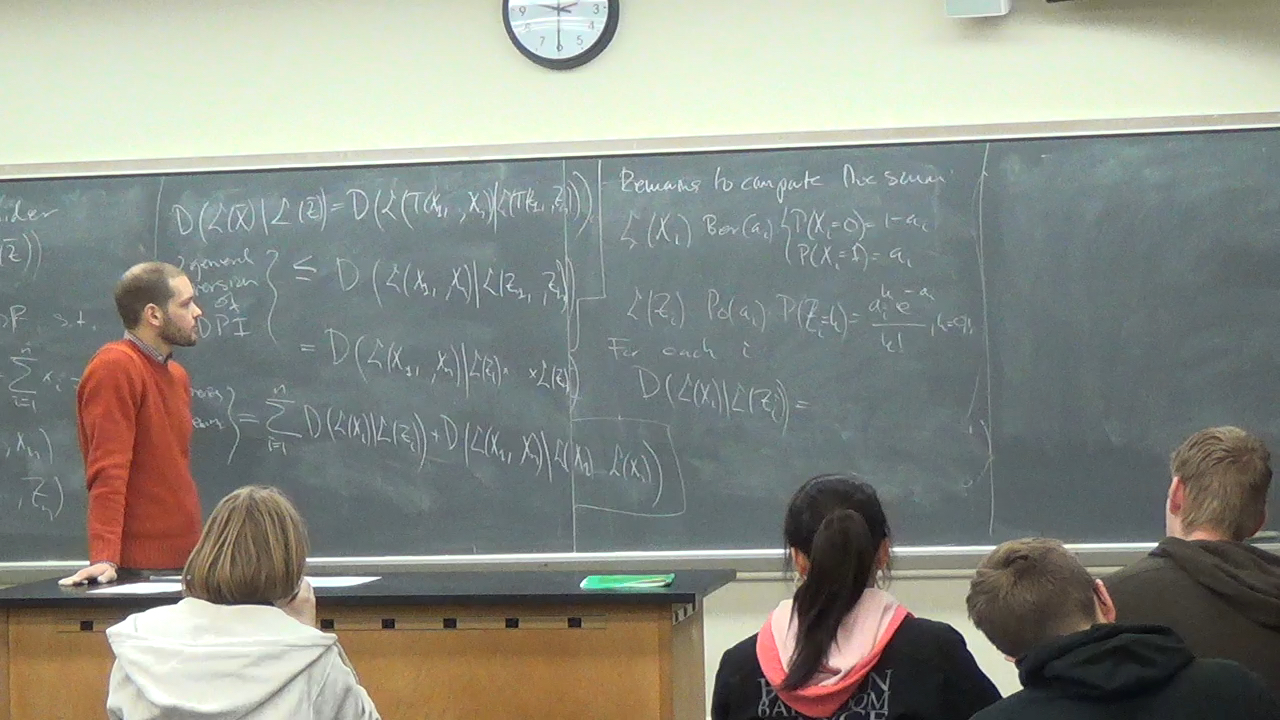 9 3
8 4
7 6 5
ider
(z̄))
s.t.
\sum_{i=1}^{n} x_i =
, X_n)
, Z_n)
D(ℒ(X̄)|ℒ(z̄)) = D(ℒ(T(X_1, , X_n)|ℒ(T(Z_1, , Z_n)))
general version of DPI } ≤ D(ℒ(X_1, X_n)|ℒ(Z_1, Z_n))
= D(ℒ(X_1, , X_n)|ℒ(Z_1)× ×ℒ(Z_n))
} = \sum_{i=1}^{n} D(ℒ(X_i)|ℒ(Z_i)) + D(ℒ(X_1, X_n)|ℒ(X_1) ℒ(X_n))
Remains to compute the sum:
ℒ(X_i) Ber(a_i) { P(X_i=0)=1-a_i
P(X_i=1)=a_i
ℒ(Z_i) Po(a_i) P(Z_i=k)= \frac{a_i^k e^{-a_i}}{k!}, k=0,1,
For each i
D(ℒ(X_i)|ℒ(Z_i))=